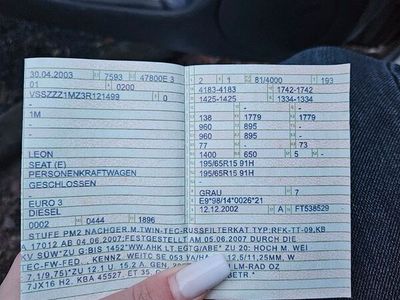 30.04.2003 7593 47800E 3
01 0200
VSSZZZ1MZ3R121499 0
-
1M
-
LEON
SEAT (E)
PERSONENKRAFTWAGEN
GESCHLOSSEN
EURO 3
DIESEL
0002 0444 1896
2 1 81/4000 193
4183-4183 1742-1742
1425-1425 1334-1334
- -
138 1779 1779
960 895 -
960 895 -
77 - 77 73
1400 650 5 -
195/65R15 91H
195/65R15 91H
- -
GRAU 7
E9*98/14*0026*21
12.12.2002 A FT538529
STUFE PM2 NACHGER.M.TWIN-TEC-RUSSFILTERKAT TYP:RFK-TT-09,KB
A 17012 AB 04.06.2007:FESTGESTELLT AM 05.06.2007 DURCH DIE
KV SÜW*ZU G:BIS 1452*WW.AHK LT.EGTG/ABE* ZU 20: HOCH M. WEI
TEC-FW-FED., KENNZ. WEITC SE 053 VA/HA 12,5/11,25MM, VER
7,1/9,75)*ZU 12.1 U 15.2 A. GEN. LM-RAD OZ
7JX16 H2, KBA 45527, ET 35, BETR.*